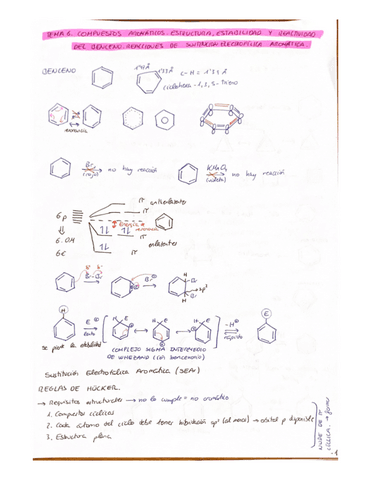 TEMA 6. COMPUESTOS AROMÁTICOS. ESTRUCTURA, ESTABILIDAD Y REACTIVIDAD
DEL BENCENO. REACCIONES DE SUSTITUCIÓN ELECTROFÍLICA AROMÁTICA.
BENCENO
ciclohexa-1,3,5-trieno
no hay reacción
KMnO4
no hay reacción
π antienlazantes
6 p
6 OM
6e
π enlazantes
E
H
lento
rápido
-H
se pierde la
COMPLEJO SIGMA INTERMEDIO
DE WHELAND (ión bencenonio)
Sustitución Electrofílica Aromática (SEAr)
REGLAS DE HÜCKEL.
→ Requisitos estructurales → no lo cumple = no aromático
1. Compuestos cíclicos
2. Cada átomo del ciclo debe tener hibridación sp² (al menos) → orbital p disponible
3. Estructura plana
NUBE DE π
CÍCLICA